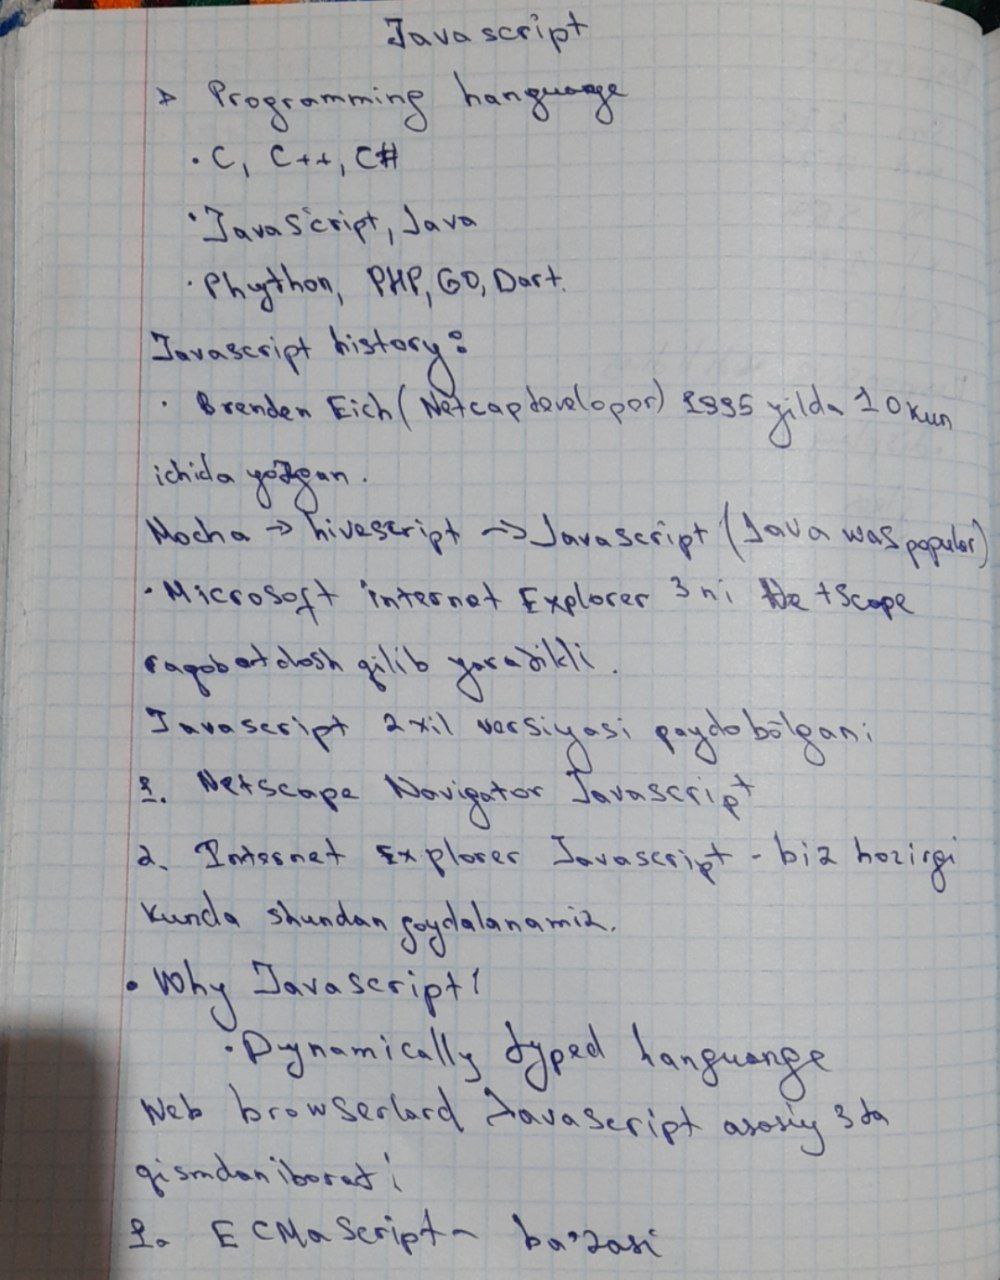 Javascript
> Programming hanguange
· C, C++, C#
· JavaScript, Java
· Phython, PHP, GO, Dart.
Javascript history:
· Brenden Eich (Netcap developor) 1995 yilda 10 kun
ichida yozgan.
Mocha → hivescript → Javascript (Java was popular)
· Microsoft internet Explorer 3 ni Netscope
raqobatdosh qilib yaratikli.
Javascript 2 xil versiyasi paydo bo'lgani
1. Netscape Navigator Javascript
2. Internet Explorer Javascript - biz hozirgi
kunda shundan foydalanamiz.
• Why Javascript?
· Dynamically typed hanguange
Web browserlard Javascript asosiy 3 ta
qismdan iborat:
1. ECMaScript - ba'zasi